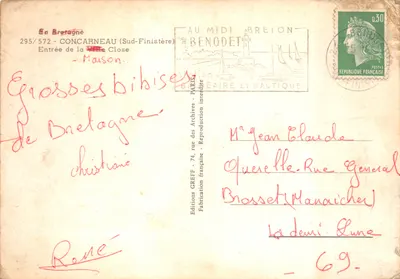 En Bretagne
295/572 - CONCARNEAU (Sud-Finistère)
Entrée de la Ville Close
- Maison
Grosses bibises
de Bretagne
christiane
René
Editions GREFF - 74, rue des Archives - PARIS
Fabrication française - Reproduction interdite
AU MIDI BRETON
BENODET
BALNEAIRE
0,30
REPUBLIQUE FRANÇAISE
Mr Jean Claude
Querelle. Rue General
Brosset (Manaicher)
La demi-Lune
69.